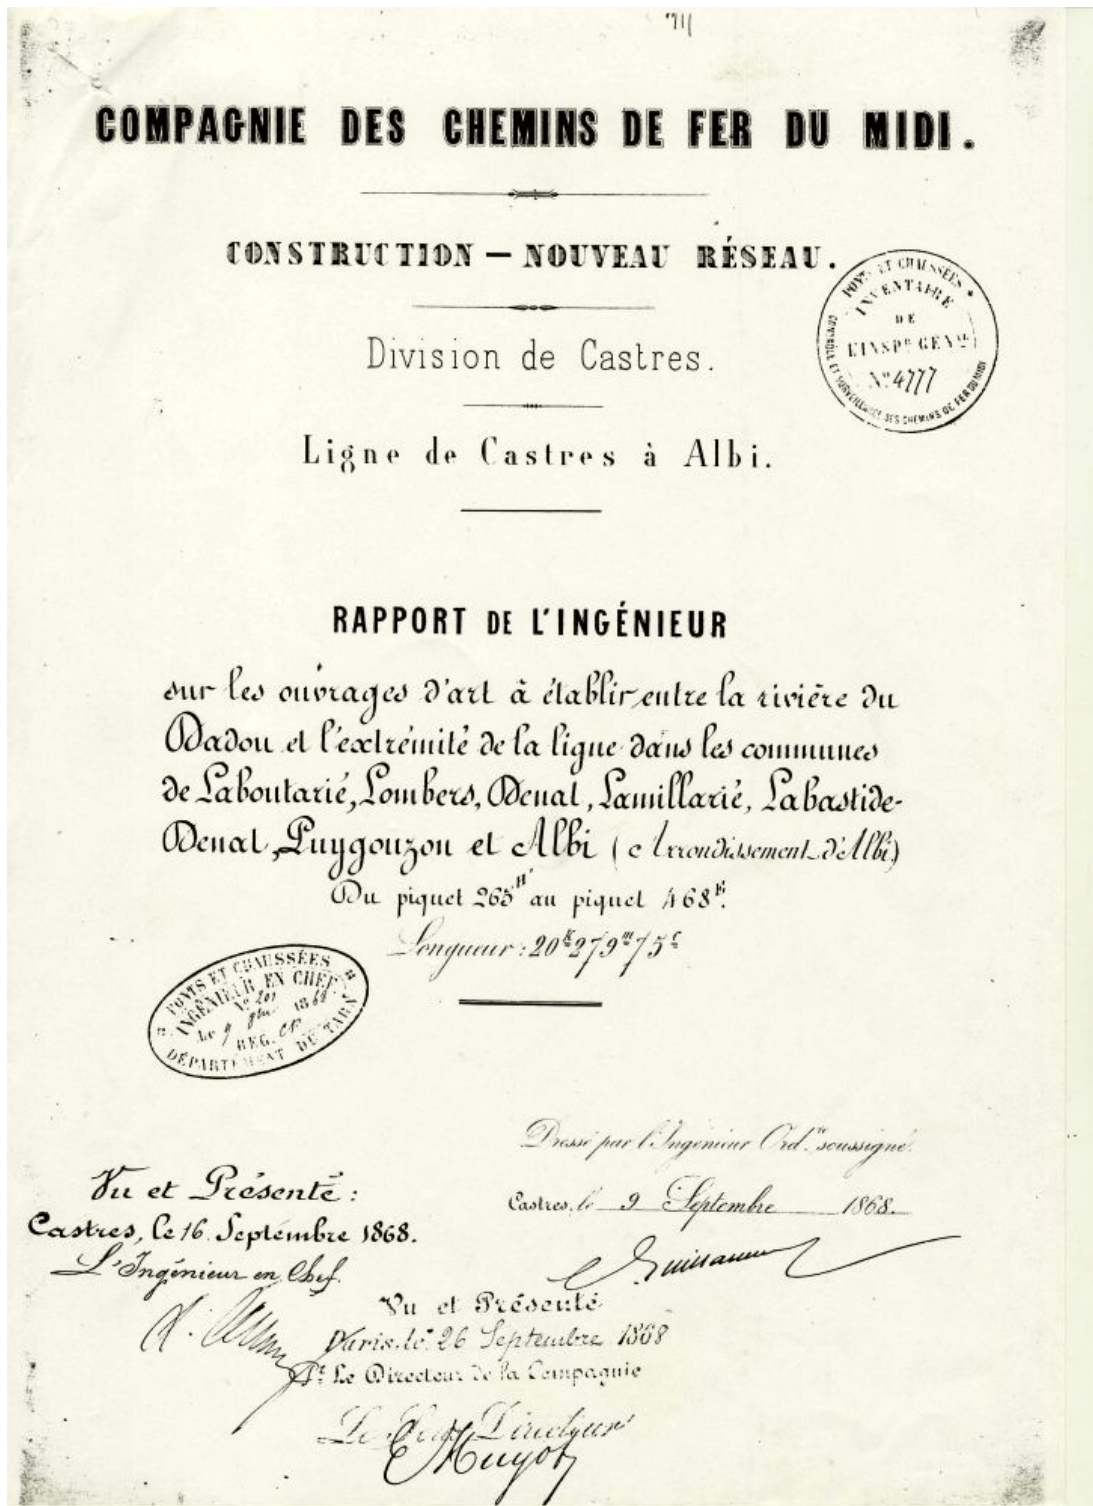 COMPAGNIE DES CHEMINS DE FER DU MIDI.
CONSTRUCTION — NOUVEAU RÉSEAU.
PONTS ET CHAUSSÉES
INVENTAIRE
DE
L'INSP.R GÉN.AL
N° 4777
CONTRÔLE ET SURVEILLANCE DES CHEMINS DE FER DU MIDI
Division de Castres.
Ligne de Castres à Albi.
RAPPORT DE L'INGÉNIEUR
sur les ouvrages d'art à établir entre la rivière du
Dadou et l'extrémité de la ligne dans les communes
de Laboutarié, Lombers, Denat, Lamillarié, Labastide-
Denat, Puygouzon et Albi (Arrondissement d'Albi)
Du piquet 265H au piquet 468K.
Longueur : 20K279m75c
PONTS ET CHAUSSÉES
INGÉNIEUR EN CHEF
N° 201
Le 9 1868
REG.
DÉPARTEMENT DU TARN
Dressé par l'Ingénieur Ord.re soussigné.
Castres, le 9 Septembre 1868.
Guillaume
Vu et Présenté :
Castres, le 16 Septembre 1868.
L'Ingénieur en Chef.
Vu et Présenté
Paris, le 26 Septembre 1868
Pr. Le Directeur de la Compagnie
Le Directeur